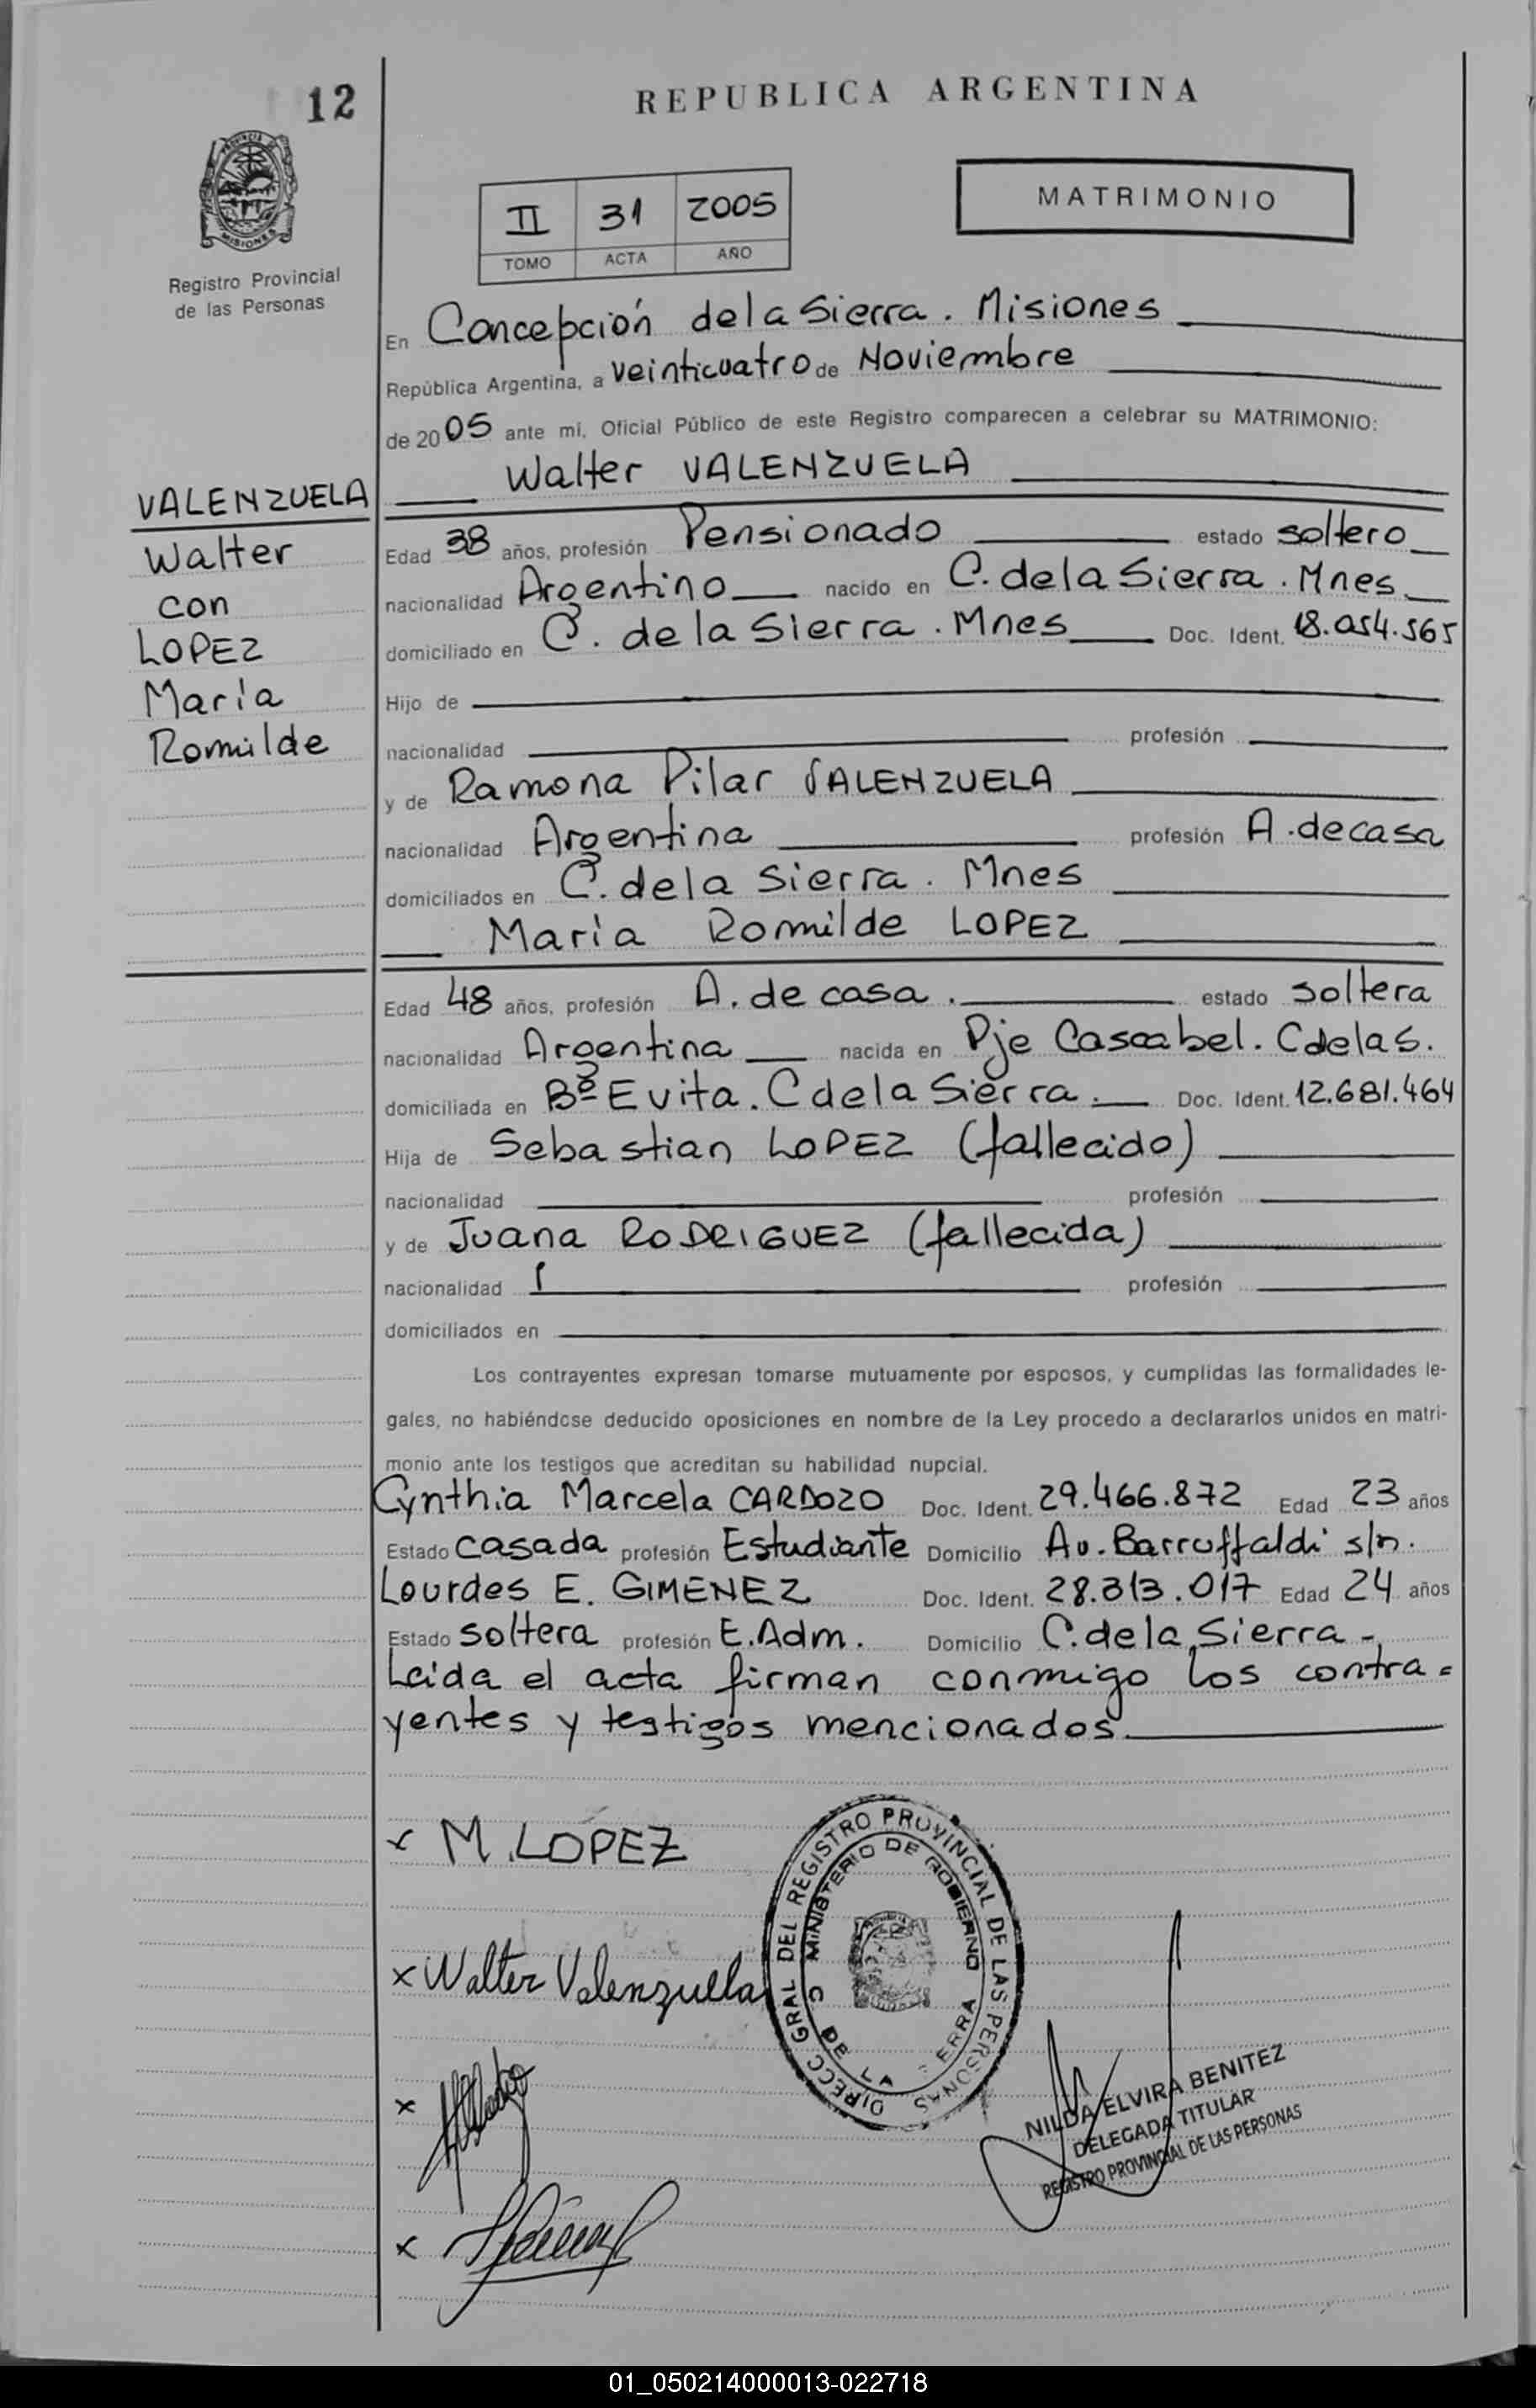 12
REPUBLICA ARGENTINA
PROVINCIA DE
MISIONES
Registro Provincial
de las Personas
II 31 2005
TOMO ACTA AÑO
MATRIMONIO
En Concepción de la Sierra. Misiones
República Argentina, a veinticuatro de Noviembre
de 2005 ante mi, Oficial Público de este Registro comparecen a celebrar su MATRIMONIO:
Walter VALENZUELA
VALENZUELA
Walter
con
LOPEZ
María
Romilde
Edad 38 años, profesión Pensionado estado soltero
nacionalidad Argentino nacido en C. de la Sierra. Mnes.
domiciliado en C. de la Sierra. Mnes Doc. Ident. 18.054.565
Hijo de
nacionalidad profesión
y de Ramona Pilar VALENZUELA
nacionalidad Argentina profesión A. de casa
domiciliados en C. de la Sierra. Mnes
María Romilde LOPEZ
Edad 48 años, profesión A. de casa. estado soltera
nacionalidad Argentina nacida en Pje Cascabel. C de la S.
domiciliada en Bº Evita. C de la Sierra. Doc. Ident. 12.681.464
Hija de Sebastian LOPEZ (fallecido)
nacionalidad profesión
y de Juana RODRIGUEZ (fallecida)
nacionalidad profesión
domiciliados en
Los contrayentes expresan tomarse mutuamente por esposos, y cumplidas las formalidades le-
gales, no habiéndose deducido oposiciones en nombre de la Ley procedo a declararlos unidos en matri-
monio ante los testigos que acreditan su habilidad nupcial.
Cynthia Marcela CARDOZO Doc. Ident. 29.466.872 Edad 23 años
Estado casada profesión Estudiante Domicilio Av. Barruffaldi s/n.
Lourdes E. GIMENEZ Doc. Ident. 28.313.017 Edad 24 años
Estado soltera profesión E. Adm. Domicilio C. de la Sierra -
Leida el acta firman conmigo los contra=
yentes y testigos mencionados
x M. LOPEZ
x Walter Valenzuella
x
x
DIRECC GRAL DEL REGISTRO PROVINCIAL DE LAS PERSONAS
MINISTERIO DE GOBIERNO
C DE LA ERRA
NILDA ELVIRA BENITEZ
DELEGADA TITULAR
REGISTRO PROVINCIAL DE LAS PERSONAS
01_050214000013-022718